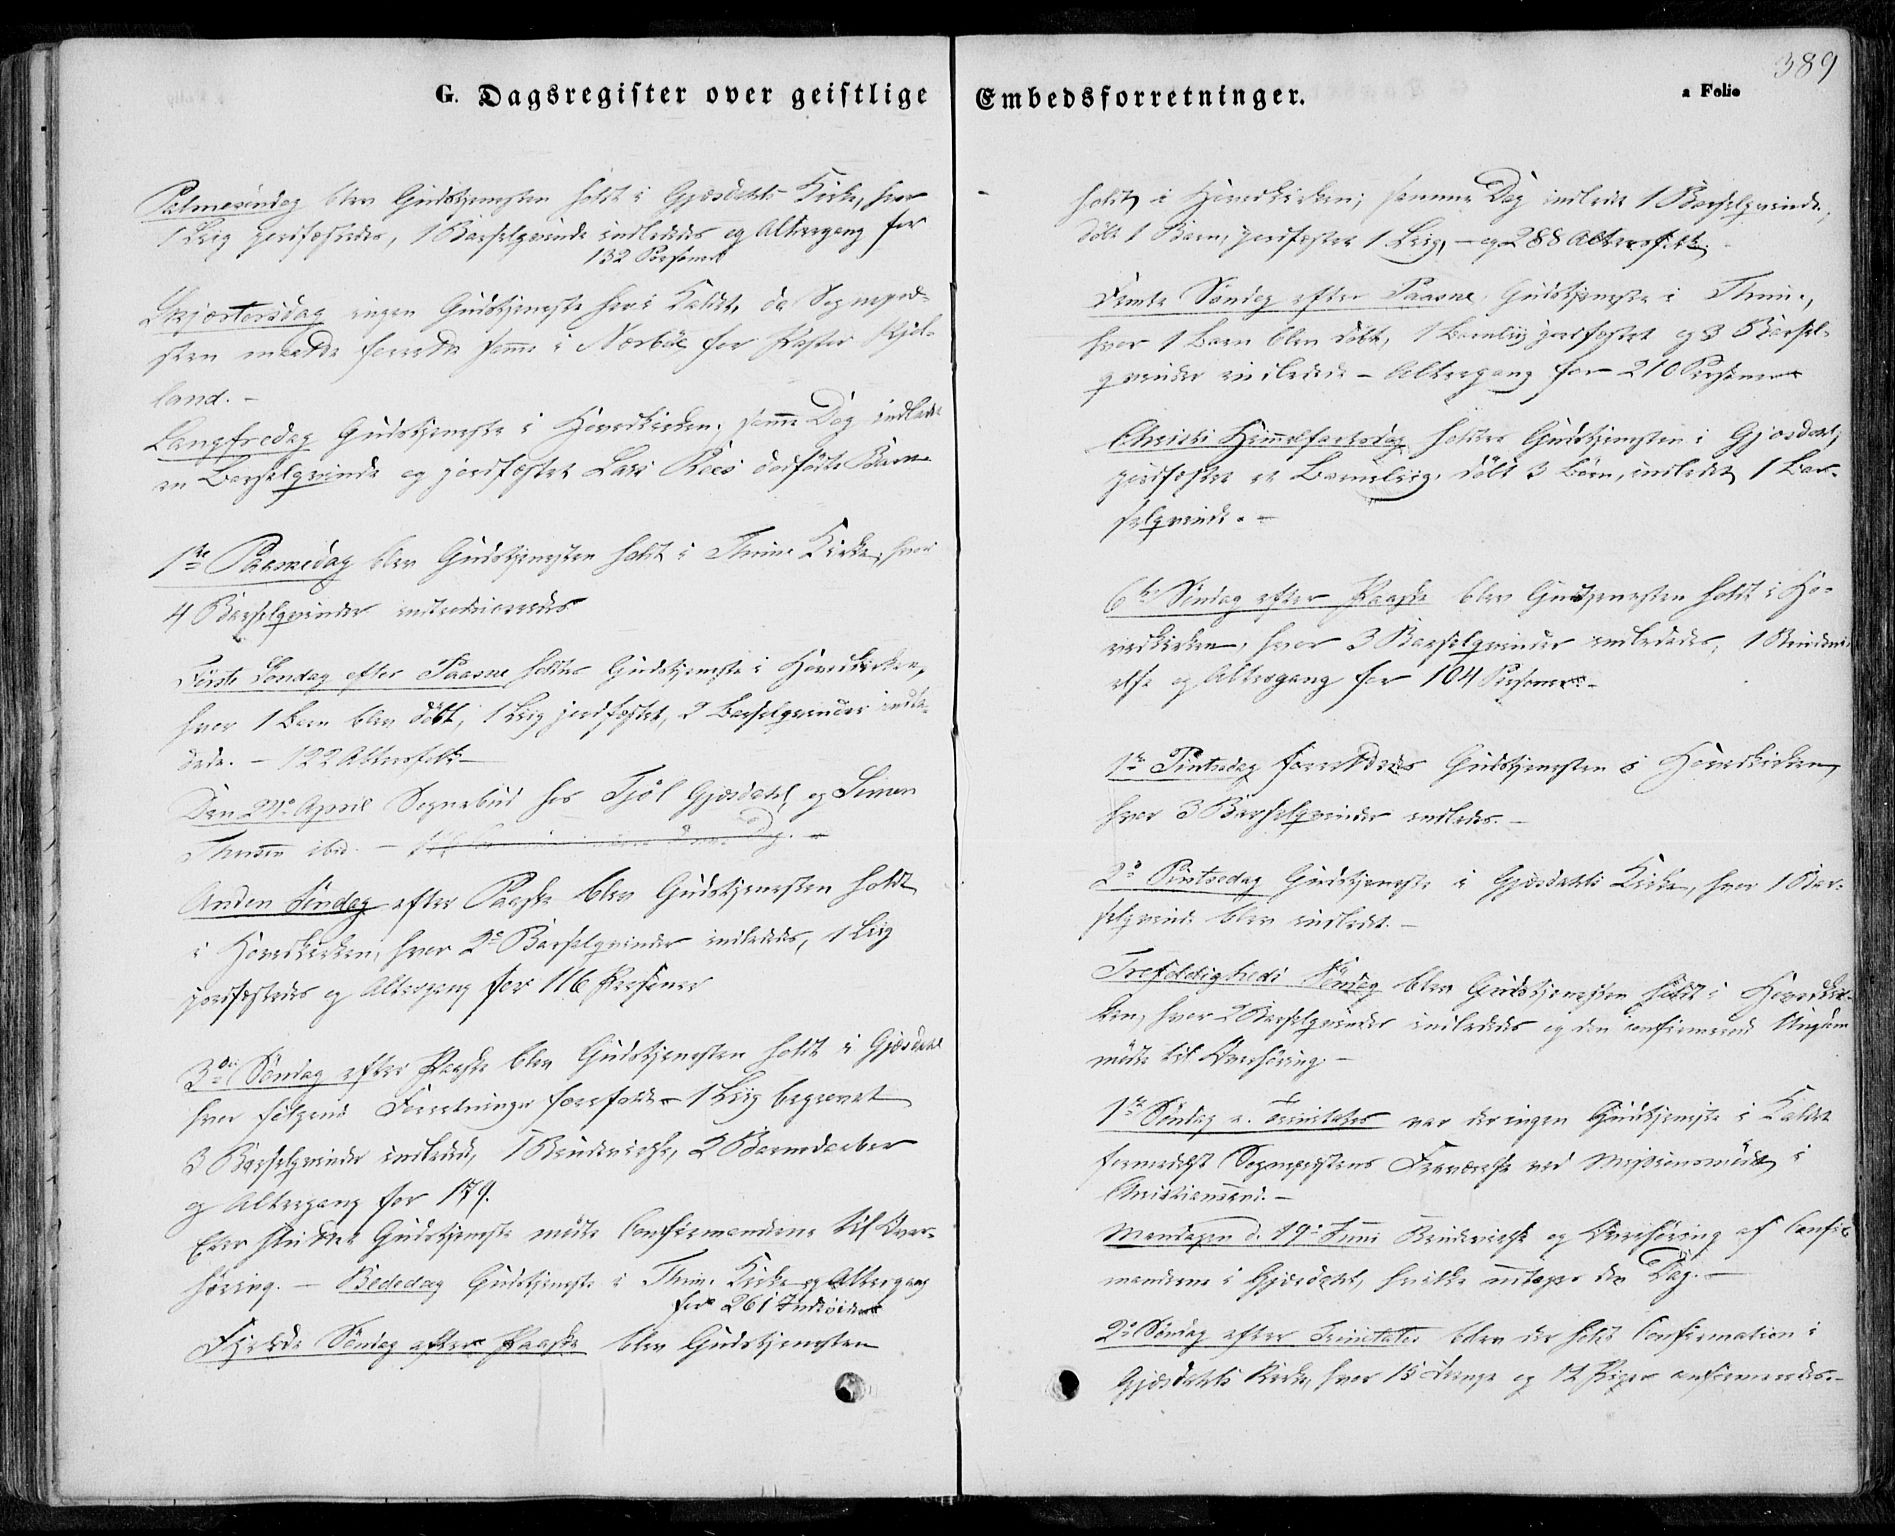 389
G. Dagsregister over geistlige Embedsforretninger.
a Folio
Palmesøndag blev Gudstjenesten holdt i Gjæsdahls Kirke, hvor
1 Liig jordfæstedes, 1 Barselqvinde indledes og Altergang for
132 Personer
Skjærtorsdag ingen Gudstjeneste her i Kaldet, da Sognepræ-
sten maatte forrette samme i Nærbøe for Pastor Kjel-
land. -
Langfredag Gudstjeneste i Hovedkirken; samme Dag indledet
en Barselqvinde og jordfæstet Lars dødfødte Barn
1ste Paaskedag blev Gudstjenesten holdt i Thime Kirke, hvor
4 Barselqvinder introduceredes
Første Søndag efter Paaske holdtes Gudstjeneste i Hovedkirken,
hvor 1 Barn blev døbt, 1 Liig jordfæstet, 2 Barselqvinder indle-
dede. - 122 Altersfolk -
Den 24de April Sognebud hos Gjæsdahl og Simon
ibid. -
Anden Søndag efter Paaske blev Gudstjenesten holdt
i Hovedkirken, hvor 2de Barselqvinder indledes, 1 Liig
jordfæstedes og Altergang for 116 Personer
3die Søndag efter Paaske blev Gudstjenesten holdt i Gjæsdahl
hvor følgende Forretninger forefaldt - 1 Liig begravet
3 Barselqvinder indledede, 1 Brudevielse, 2 Barnedaaber
og Altergang for 179.
Efter sluttet Gudstjeneste mødte Confirmanderne til Over-
høring. - Bededag Gudstjeneste i Thime Kirke og Altergang
for 261 Individer
Fjerde Søndag efter Paaske blev Gudstjenesten
holdt i Hovedkirken; samme Dag indledet 1 Barselqvinde,
døbt 1 Barn, jordfæstet 1 Liig, - og 288 Altersfolk.
Femte Søndag efter Paaske Gudstjeneste i Thime,
hvor 1 Barn blev døbt, 1 Barneliig jordfæstet og 3 Barsel-
qvinder indledede - Altergang for 210 Personer
Christi Himmelfartsdag holdtes Gudstjenesten i Gjæsdahl;
jordfæstet et Barneliig, døbt 3 Børn, indledet 1 Bar-
selqvinde. -
6te Søndag efter Paaske blev Gudstjenesten holdt i Ho-
vedkirken, hvor 3 Barselqvinder indledes, 1 Brudevi-
else og Altergang for 104 Personer. -
1ste Pintsedag forrettedes Gudstjenesten i Hovedkirken,
hvor 3 Barselqvinder indledes. -
2den Pintsedag Gudstjeneste i Gjæsdahls Kirke, hvor 1 Bar-
selqvinde blev indledet. -
Trefoldigheds Søndag blev Gudstjenesten holdt i Hovedkir-
ken, hvor 2 Barselqvinder indledes og den confirmerende Ungdom
mødte til Overhøring. -
1ste Søndag e. Trinitates var der ingen Gudstjeneste i Kaldet
formedelst Sognepræstens Fraværelse ved Missionsmøde i
Christianssand. -
Mandagen d. 19de Juni Brudevielse og Overhøring af Confir-
manderne i Gjæsdahl, hvilke antoges den Dag. -
2den Søndag efter Trinitates blev der holdt Confirmation i
Gjæsdahls Kirke, hvor 15 Drenge og 12 Piger confirmeredes. -